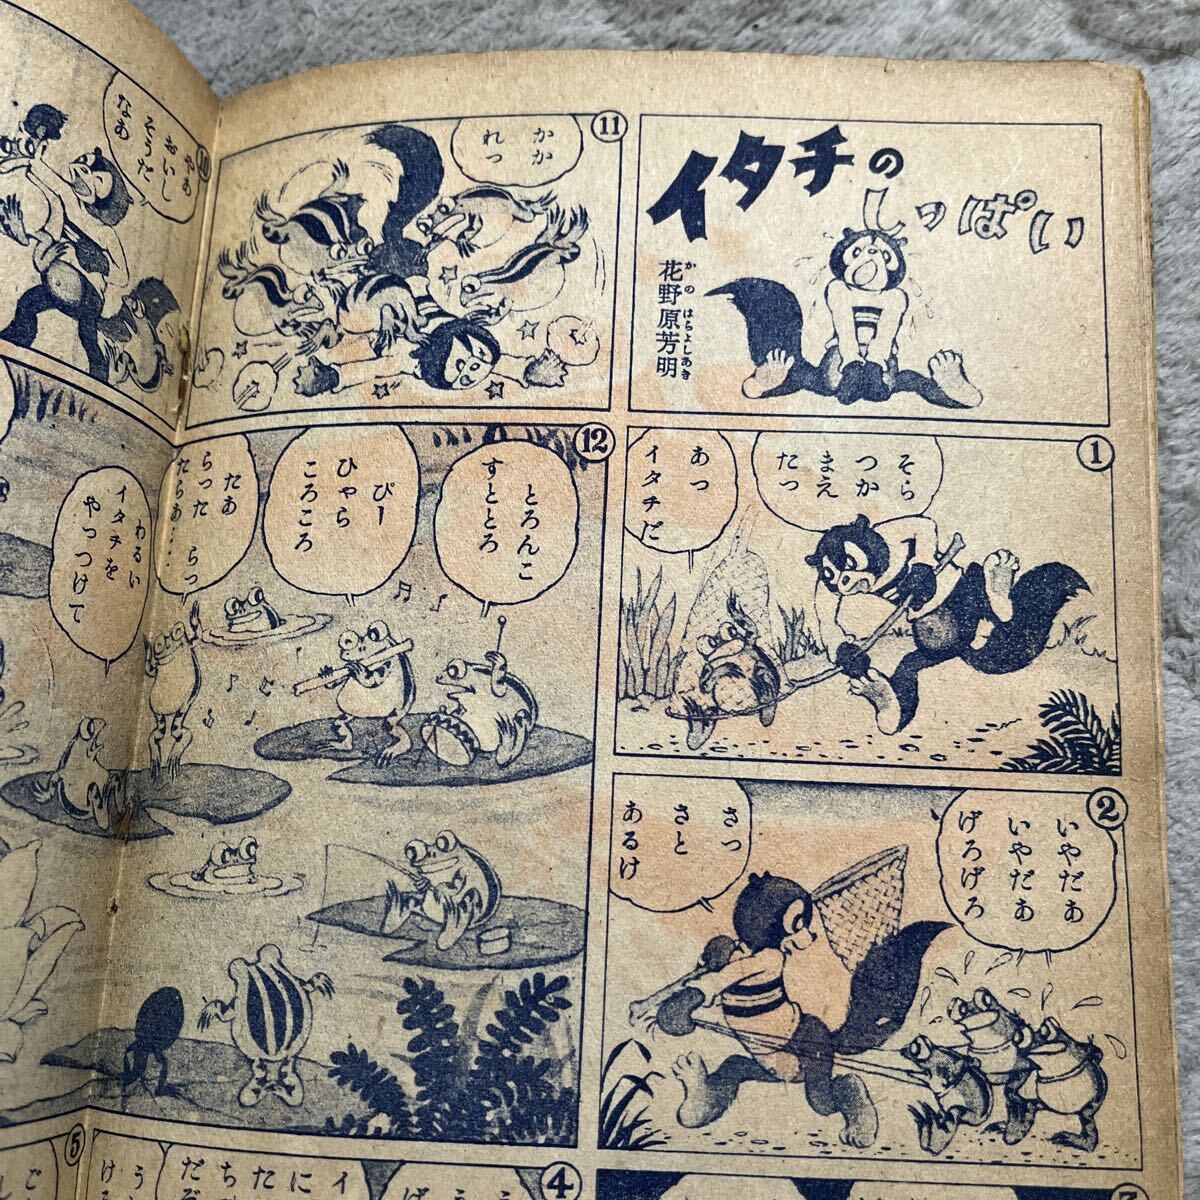 イタチの
しっぱい
花野原芳明
かのはらよしあき
①
そら
つか
まえ
たっ
あっ
イタチだ
②
いやだぁ
いやだぁ
げろげろ
さっ
さと
あるけ
④
⑤
⑩
やぁ
おいし
そうだ
なぁ
⑪
かか
れっ
⑫
とろんこ
すととろ
ぴー
ひゃら
ころころ
たあ
らった らっ
たらあ・・・・
わるい
イタチを
やっつけて